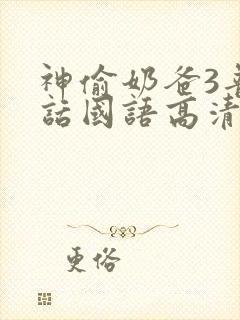 神偷奶爸3普
話國語高清
更俗